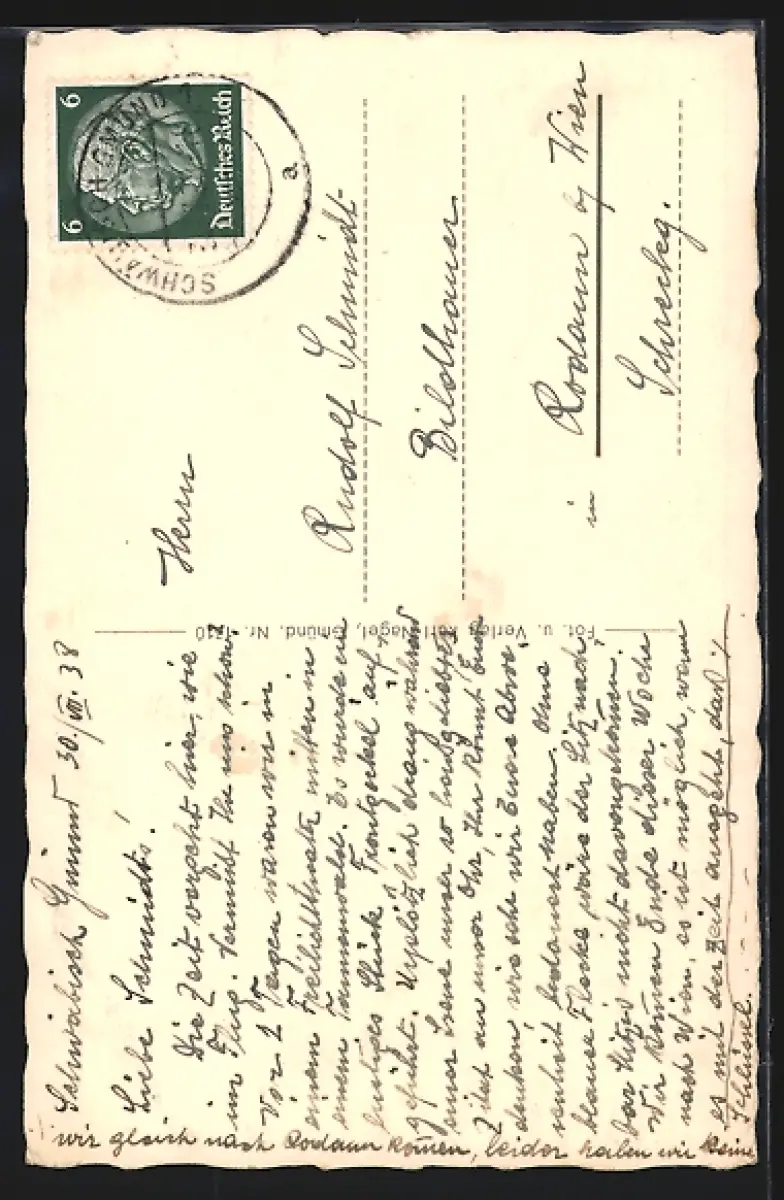 Schwäbisch Gmünd 30./VII. 38
Liebe Schmidts!
Die Zeit vergeht hier, wie
im Flug. Vermißt Ihr uns schon?
Vor 2 Tagen waren wir in
einem Freilichttheater mitten in
einem Tannenwald. Es wurde ein
lustiges Stück "Frontgockel" auf-
geführt. Urplötzlich drang während
einer Szene unser so heißgeliebtes
Zitat an unser Ohr, Ihr könnt Euch
denken, wie sehr wir Eure Abwe-
senheit bedauert haben. Ohne
blaue Flecke wäre der Sitznach-
bar nicht davongekommen.
Wir können Ende dieser Woche
nach Wien, es ist möglich, wenn
es mit der Zeit ausgeht, daß
wir gleich nach Rodaun kommen, leider haben wir keine
Schlüssel.
Fot. u. Verlag Karl Nagel, Gmünd. Nr. 1210
6 6
Deutsches Reich
SCHWÄBISCH GMÜND 1
a
Herrn
Rudolf Schmidt
Bildhauer
in Rodaun b/ Wien
Schreckg.